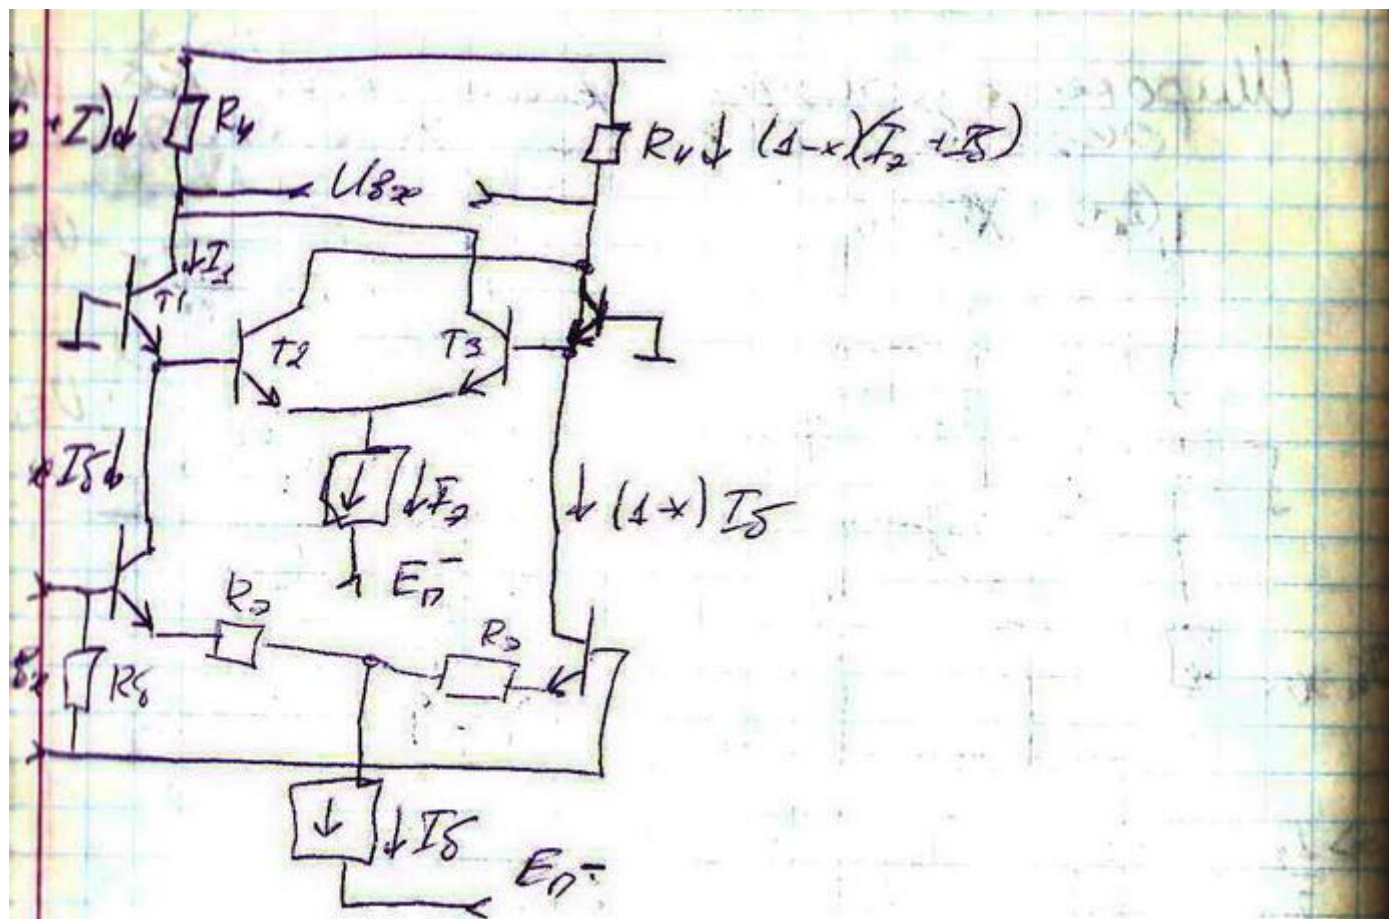 +I)↓
Rн
Rн↓ (1-x)(Iэ+Iб)
Uвх
↓I1
T1
T2
T3
xIб↓
↓Iэ
↓(1-x)Iб
Eп-
Rэ
Rэ
Rб
↓Iб
Eп-